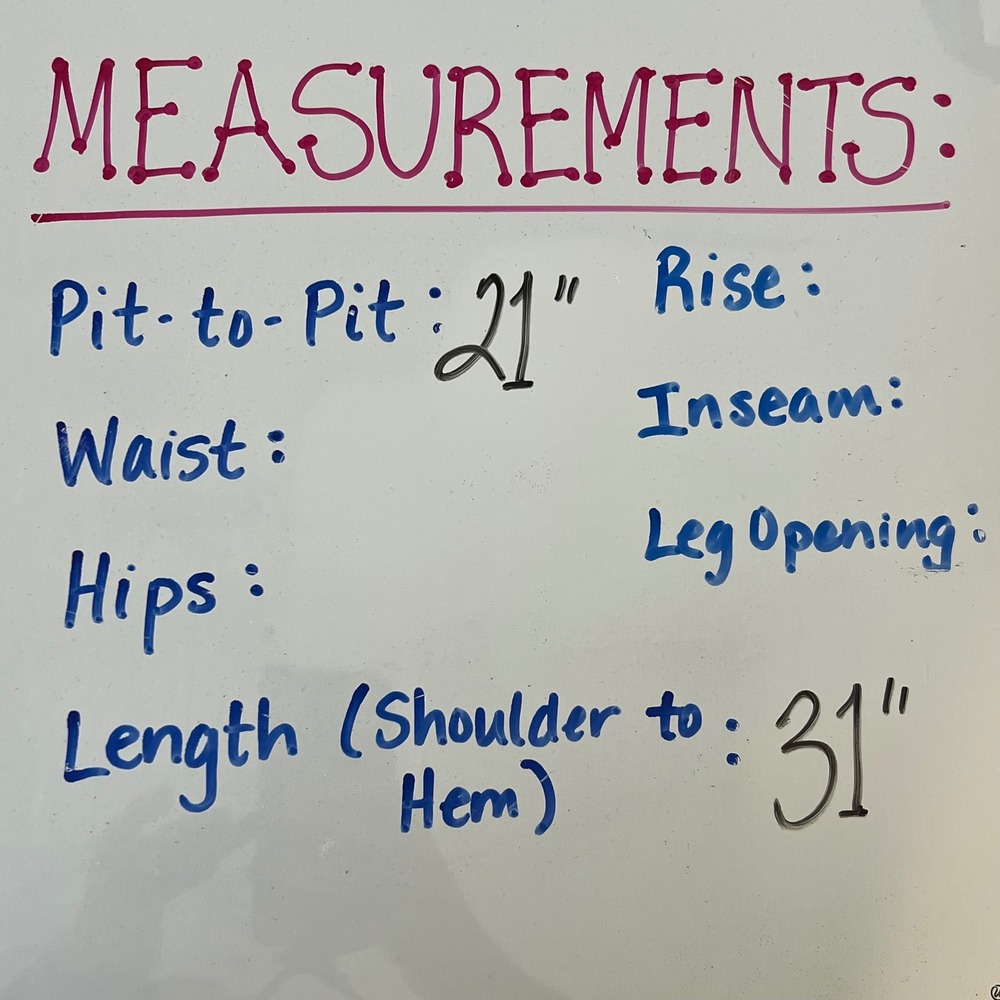 MEASUREMENTS:
Pit-to-Pit: 21"
Rise:
Waist:
Inseam:
Hips:
Leg Opening:
Length (Shoulder to Hem): 31"